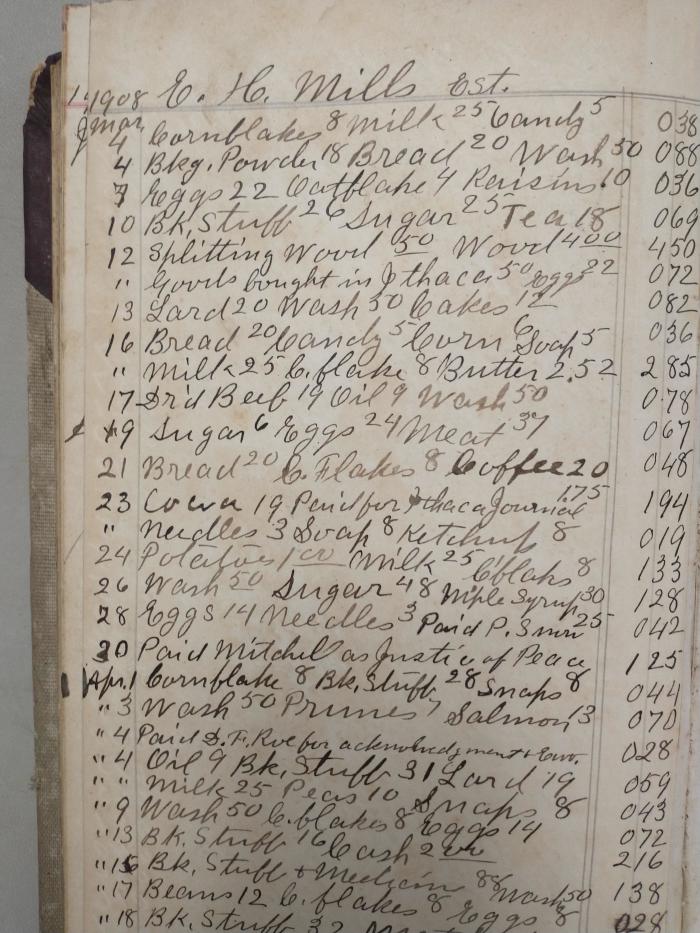 1908 E. H. Mills Est.
Mar
4 Cornflakes 8 Milk 25 Candy 5 038
4 Bkg. Powder 18 Bread 20 Wash 50 088
7 Eggs 22 Oatflake 4 Raisins 10 036
10 Bk. Stuff 26 Sugar 25 Tea 18 069
12 Splitting Wood 50 Wood 400 450
" Goods bought in Ithaca 50 Eggs 22 072
13 Lard 20 Wash 50 Cakes 12 082
16 Bread 20 Candy 5 Corn 6 Soap 5 036
" Milk 25 C. flake 8 Butter 2.52 285
17 Dr'd Beef 19 Oil 9 Wash 50 078
19 Sugar 6 Eggs 24 Meat 37 067
21 Bread 20 C. Flakes 8 Coffee 20 048
23 Cocoa 19 Paid for Ithaca Journal 175 194
" Needles 3 Soap 8 Ketchup 8 019
24 Potatoes 1 00 Milk 25 C'flaks 8 133
26 Wash 50 Sugar 48 Mple Syrup 30 128
28 Eggs 14 Needles 3 Paid P. Snow 25 042
30 Paid Mitchell as Justic of Peace 125
Apr. 1 Cornflake 8 Bk. Stuff 28 Snaps 8 044
" 3 Wash 50 Prunes 7 Salmon 13 070
" 4 Paid D. F. Roe for acknowledgment + Env. 028
" 4 Oil 9 Bk. Stuff 31 Lard 19 059
" " Milk 25 Peas 10 Snaps 8 043
" 9 Wash 50 C. flakes 8 Eggs 14 072
" 13 Bk. Stuff 16 Cash 2 00 216
" 15 Bk. Stuff + Medicin 88 Wash 50 138
" 17 Beans 12 C. flakes 8 Eggs 8 028
" 18 Bk. Stuff 32